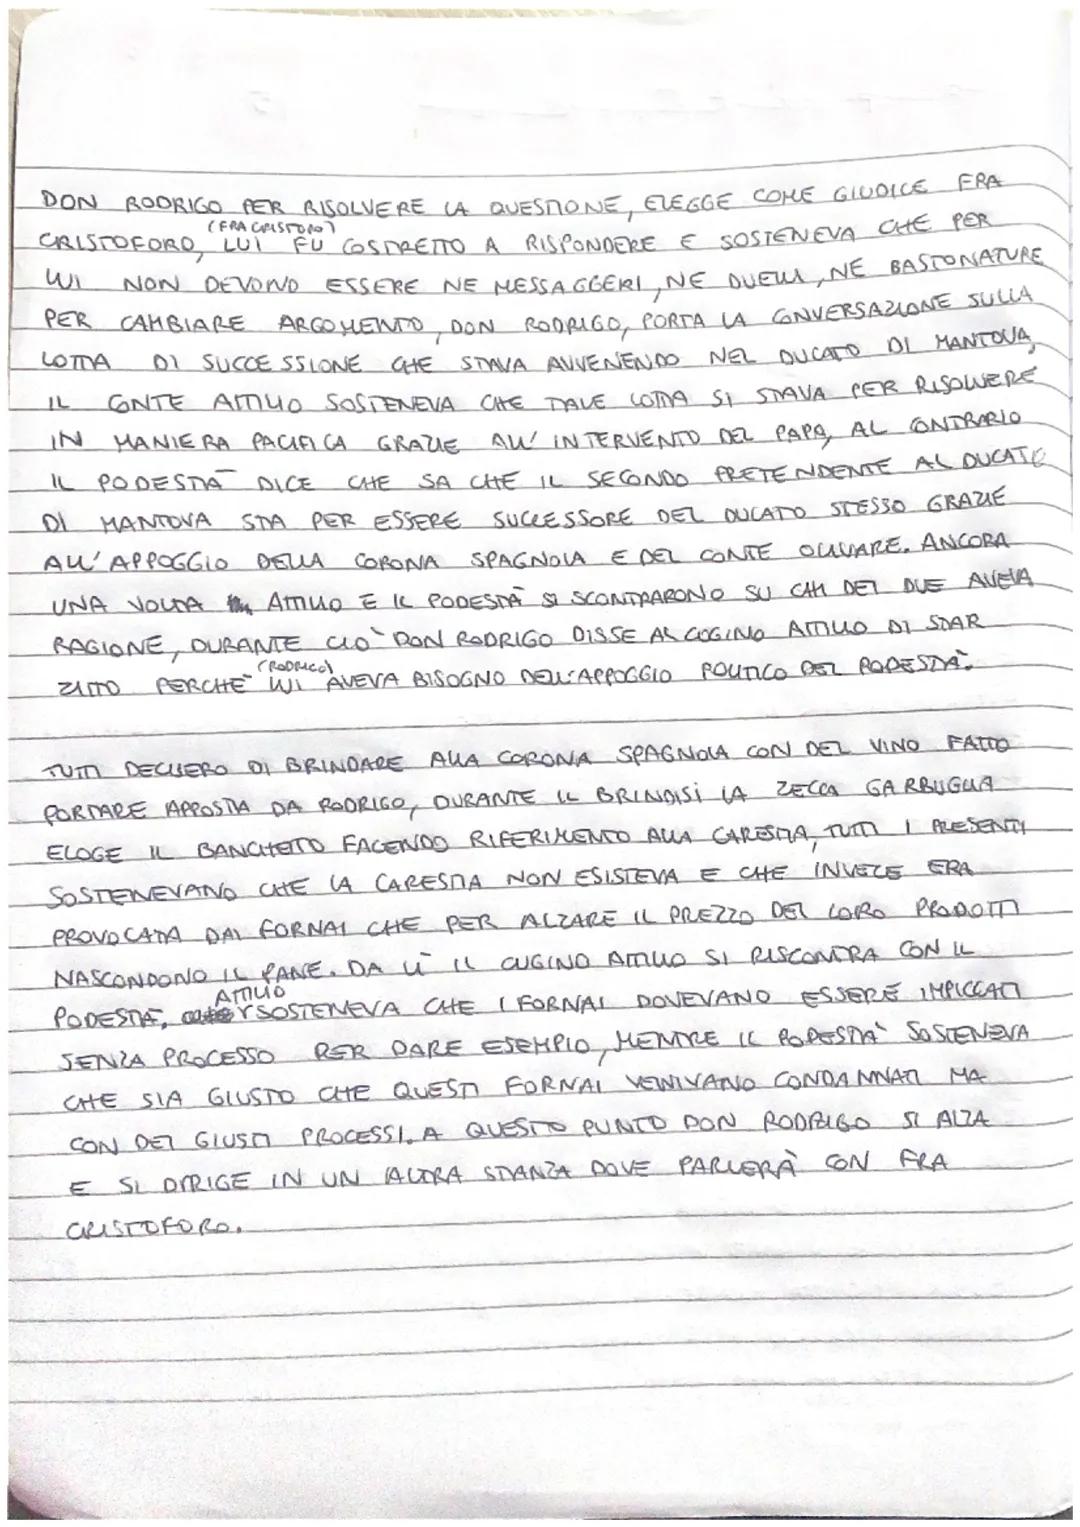 DON RODRIGO PER RISOLVERE LA QUESTIONE, ELEGGE COME GIUDICE FRA
(FRA CRISTOFORO)
CRISTOFORO, LUI FU COSTRETTO A RISPONDERE E SOSTENEVA CHE PER
LUI NON DEVONO ESSERE NE MESSAGGERI, NE DUELLI, NE BASTONATURE
PER CAMBIARE ARGOMENTO, DON RODRIGO, PORTA LA CONVERSAZIONE SULLA
LOTTA DI SUCCESSIONE CHE STAVA AVVENENDO NEL DUCATO DI MANTOVA,
IL CONTE ATTILIO SOSTENEVA CHE TALE LOTTA SI STAVA PER RISOLVERE
IN MANIERA PACIFICA GRAZIE ALL'INTERVENTO DEL PAPA, AL CONTRARIO
IL PODESTÀ DICE CHE SA CHE IL SECONDO PRETENDENTE AL DUCATO
DI MANTOVA STA PER ESSERE SUCCESSORE DEL DUCATO STESSO GRAZIE
ALL'APPOGGIO DELLA CORONA SPAGNOLA E DEL CONTE OLIVARE. ANCORA
UNA VOLTA ATTILIO E IL PODESTÀ SI SCONTRARONO SU CHI DEI DUE AVEVA
RAGIONE, DURANTE CIÒ DON RODRIGO DISSE AL CUGINO ATTILIO DI STAR
(RODRIGO)
ZITTO PERCHÈ LUI AVEVA BISOGNO DELL'APPOGGIO POLITICO DEL PODESTÀ.
TUTTI DECISERO DI BRINDARE ALLA CORONA SPAGNOLA CON DEL VINO FATTO
PORTARE APPOSTA DA RODRIGO, DURANTE IL BRINDISI LA ZECCA GARBUGLIA
ELOGE IL BANCHETTO FACENDO RIFERIMENTO ALLA CARESTIA, TUTTI I PRESENTI
SOSTENEVANO CHE LA CARESTIA NON ESISTEVA E CHE INVECE ERA
PROVOCATA DAI FORNAI CHE PER ALZARE IL PREZZO DEI LORO PRODOTTI
NASCONDONO IL PANE. DA LÌ IL CUGINO ATTILIO SI RISCONTRA CON IL
ATTILIO
PODESTÀ, SOSTENEVA CHE I FORNAI DOVEVANO ESSERE IMPICCATI
SENZA PROCESSO PER DARE ESEMPIO, MENTRE IL PODESTÀ SOSTENEVA
CHE SIA GIUSTO CHE QUESTI FORNAI VENIVANO CONDANNATI MA
CON DEI GIUSTI PROCESSI. A QUESTO PUNTO DON RODRIGO SI ALZA
E SI DIRIGE IN UN ALTRA STANZA DOVE PARLERÀ CON FRA
CRISTOFORO.